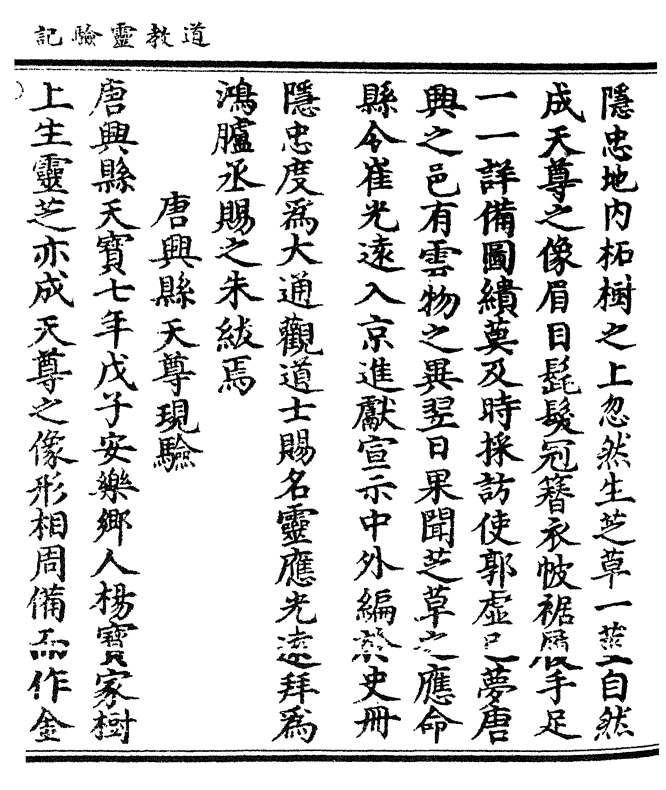 道教靈驗記
隱忠地内柘樹之上忽然生芝草一莖自然
成天尊之像眉目髭髮冠簪衣帔裾履手足
一一詳備圖繢莫及時採訪使郭虛己夢唐
興之邑有雲物之異翌日果聞芝草之應命
縣令崔光遠入京進獻宣示中外編於史册
隱忠度爲大通觀道士賜名靈應光遠拜爲
鴻臚丞賜之朱紱焉
唐興縣天尊現驗
唐興縣天寶七年戊子安樂鄉人楊寶家樹
上生靈芝亦成天尊之像形相周備而作金